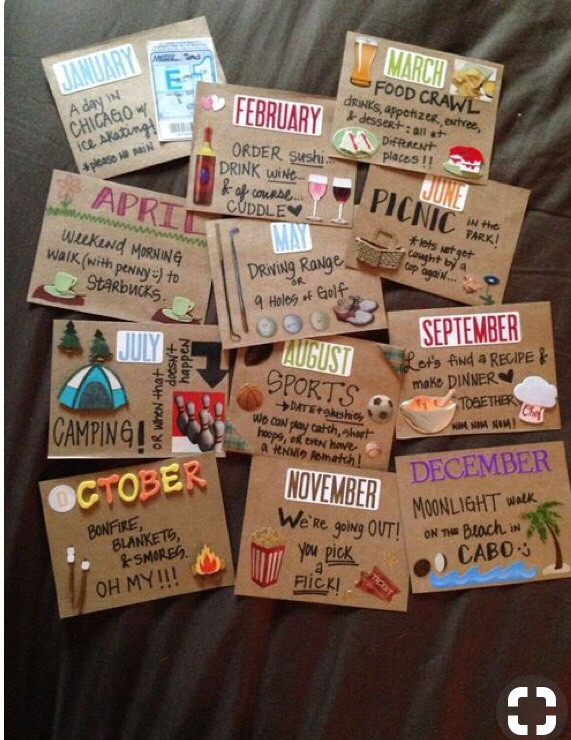 JANUARY
A day in
CHICAGO w/
ice skating!
*please no rain
E
FEBRUARY
ORDER sushi...
DRINK wine...
& of course...
CUDDLE♥
MARCH
FOOD CRAWL
drinks, appetizer, entree,
& dessert: all at
Different
places!!
APRIL
Weekend MORNING
walk (with penny :) to
STARBUCKS.
MAY
DRIVING RANGE
OR
9 Holes of Golf
JUNE
PICNIC IN THE
PARK!
*lets not get
caught by a
cop again...
JULY
CAMPING!
OR when that
doesn't
happen
AUGUST
SPORTS
→DATE + slushies
We can play catch, shoot
hoops, or even have
a tennis rematch!
SEPTEMBER
Let's find a RECIPE &
make DINNER♥
TOGETHER
NOM NOM NOM!
Chef
OCTOBER
BONFIRE,
BLANKETS,
& SMORES.
OH MY!!!
NOVEMBER
We're going OUT!
you pick
a
FLICK!
TICKET
DECEMBER
MOONLIGHT walk
ON THE Beach in
CABO :)